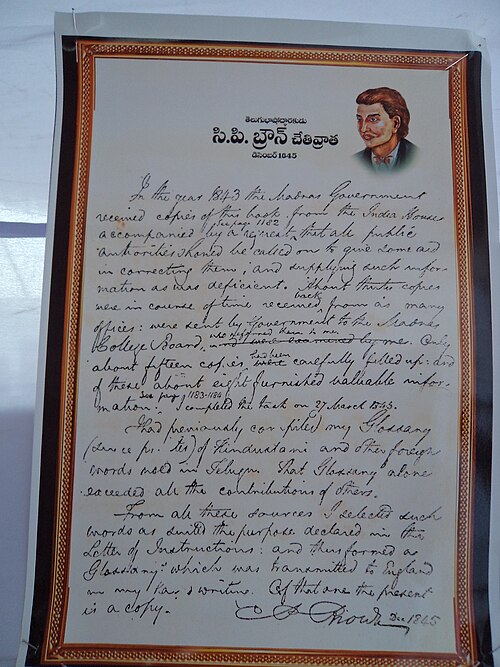 తెలుగుభాషోద్ధారకుడు
సి.పి. బ్రౌన్ చేతివ్రాత
డిసెంబర్ 1845
In the year 1843 the Madras Government
received copies of this book from the India House
See page 1182
accompanied by a request, that all public
authorities should be called on to give some aid
in correcting them, and supplying such infor-
mation as was deficient. About thirty copies
were in course of time received back from as many
offices: were sent by Government to the Madras
College Board, who referred them to me. Only
about fifteen copies had been carefully filled up: and
of these about eight furnished valuable infor-
See page 1183-1184
mation. I completed the task on 27 March 1845.
I had previously compiled my Glossary
(since printed) of Hindustani and other foreign
words used in Telugu. That Glossary alone
exceeded all the contributions of others.
From all these sources I selected such
words as suited the purpose declared in the
Letter of Instructions: and thus formed a
"Glossary" which was transmitted to England
in my hand writing. Of that one the present
is a copy. C P Brown Dec 1845